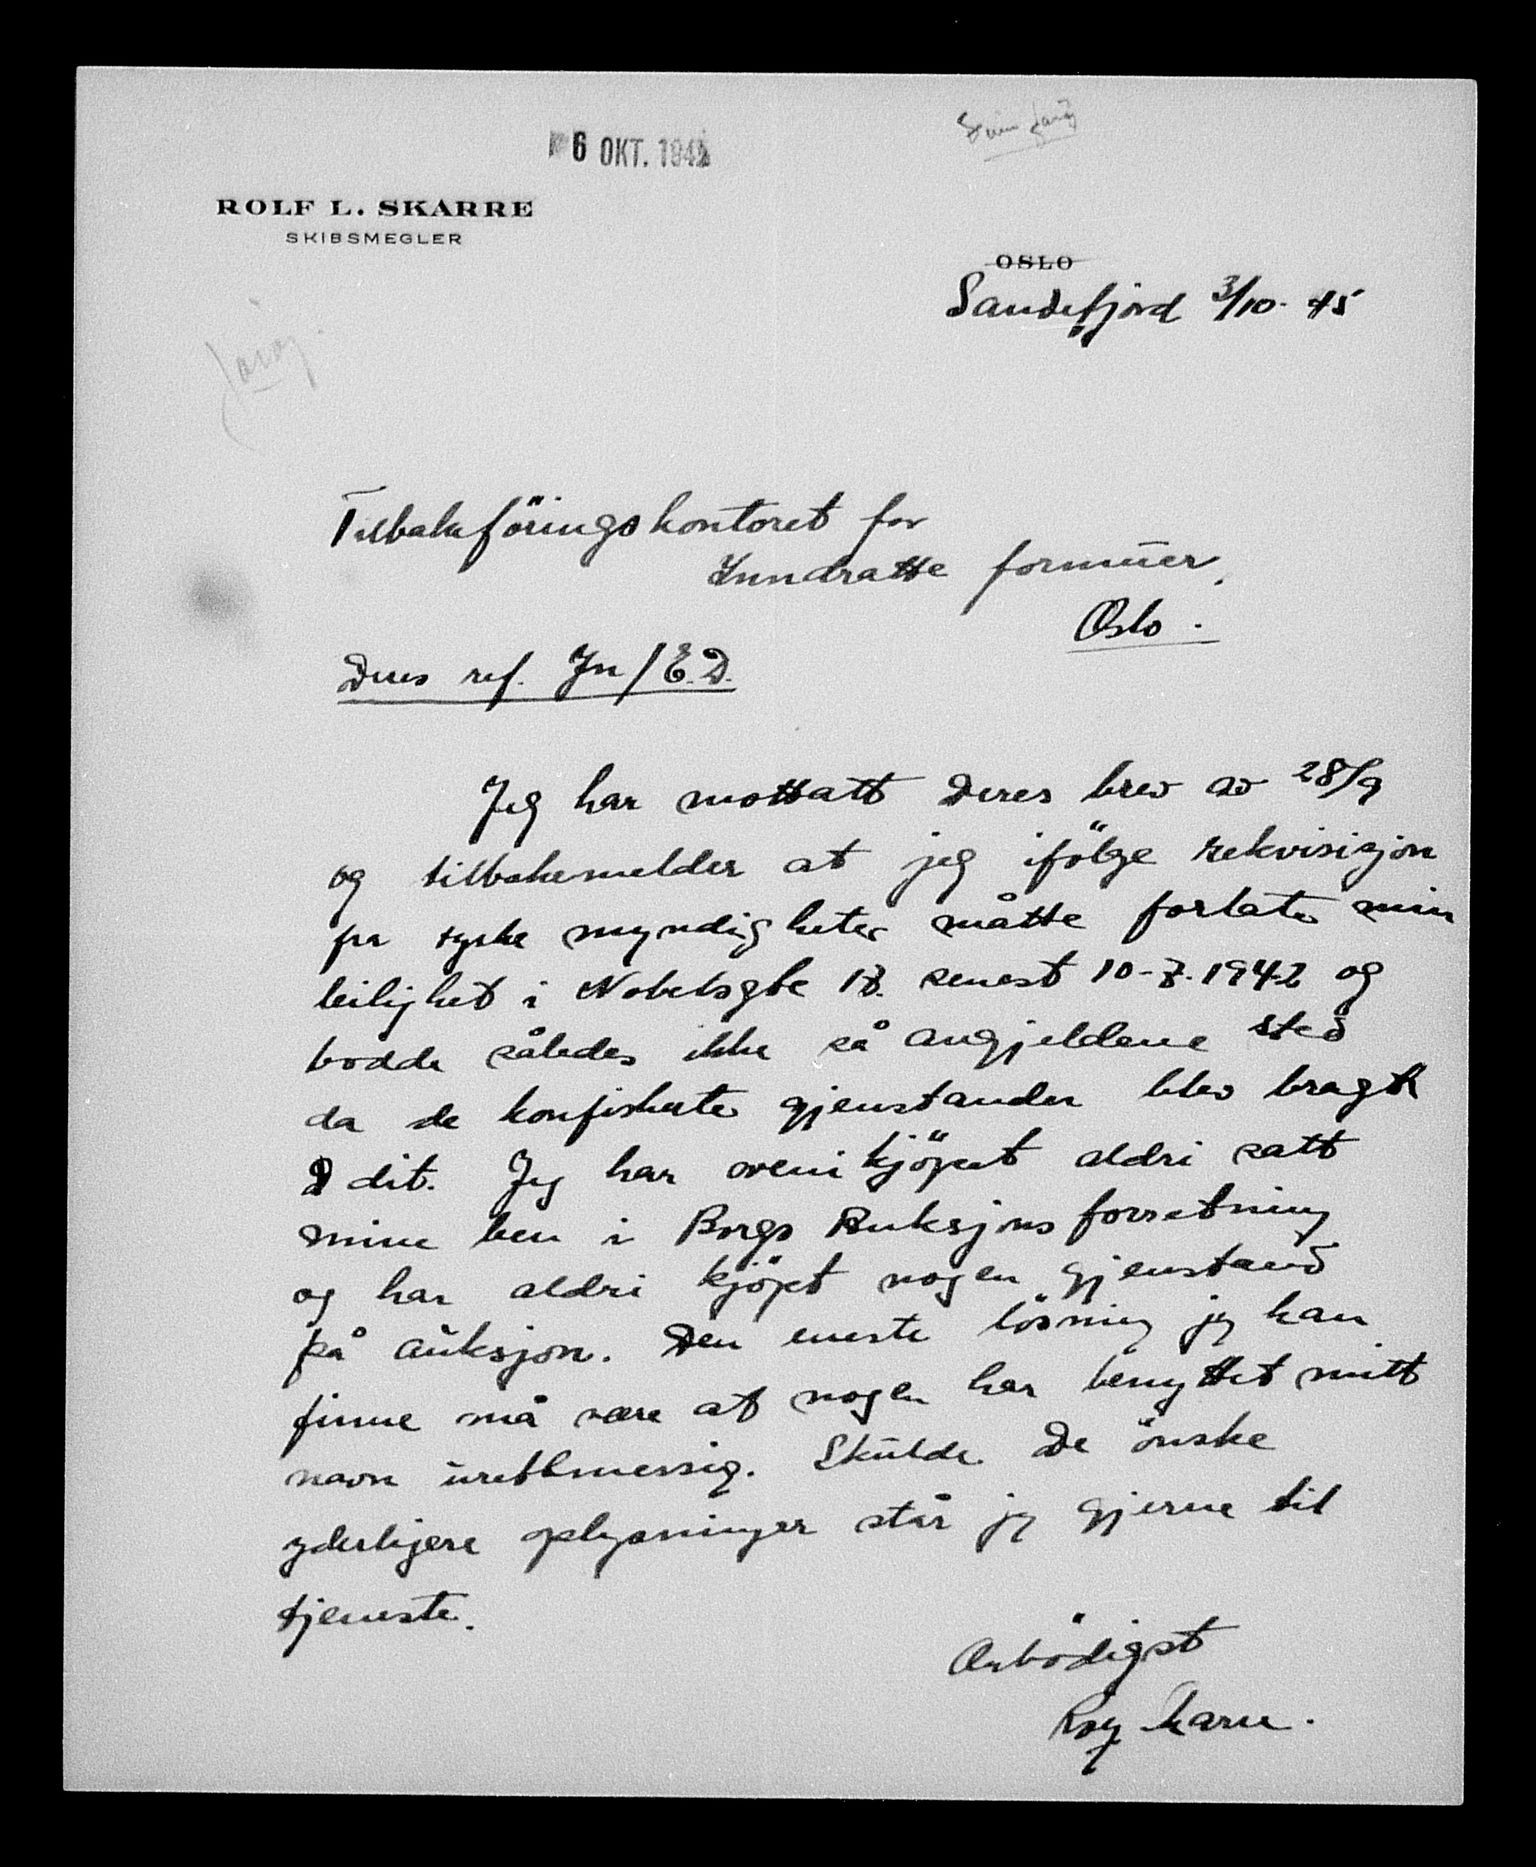 6 OKT. 1945
ROLF L. SKARRE
SKIBSMEGLER
OSLO
Sandefjord 3/10-45
Tilbakeföringskontoret for
Inndratte formuer,
Oslo.
Deres ref. Jn/E.D.
Jeg har mottatt Deres brev av 28/9
og tilbakemelder at jeg ifölge rekvisisjon
fra tyske myndigheter måtte forlate min
leilighet i Nobelsgte 18. senest 10-7-1942 og
bodde således ikke på angjeldene sted
da de konfiskerte gjenstander blev bragt
dit. Jeg har aldri satt
mine ben i Borgs Auksjonsforretning
og har aldri kjöpt nogen gjenstand
på auksjon. Den eneste lösning jeg kan
finne må være at nogen har benyttet mitt
navn urettmessig. Skulde De önske
yderligere oplysninger står jeg gjerne til
tjeneste.
Ærbödigst
Rolf Skarre.